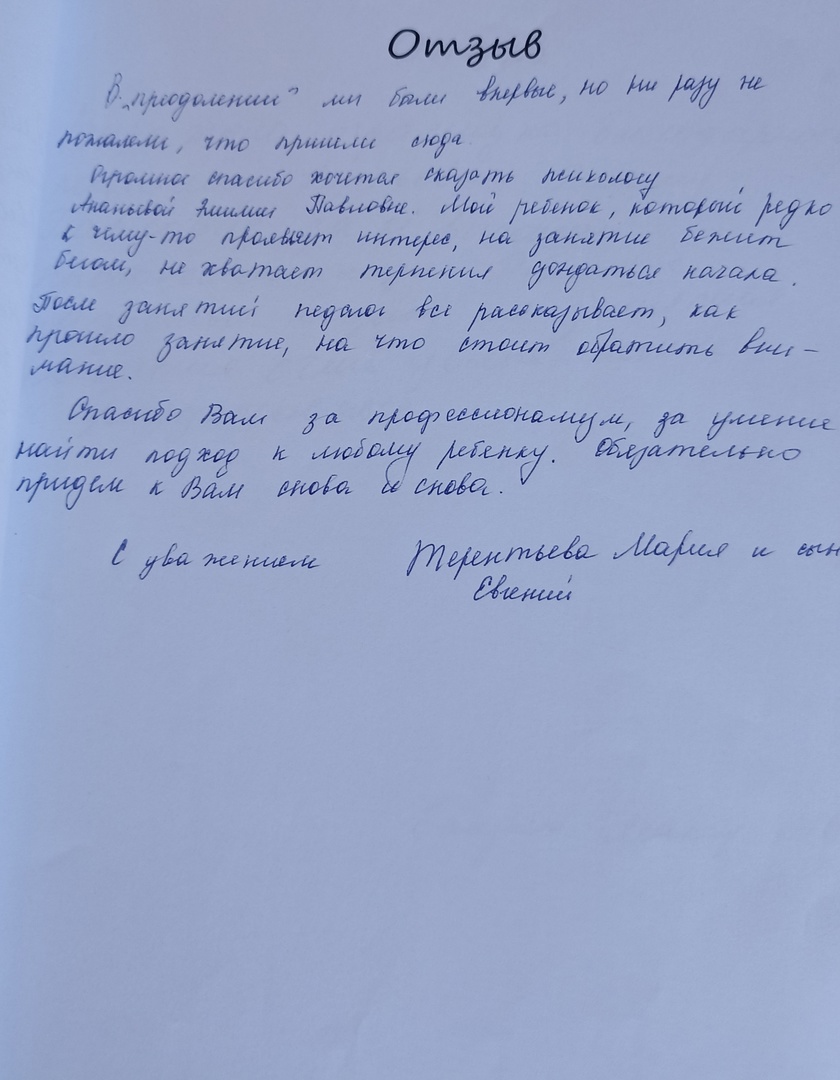 Отзыв
В „преодолении" мы были впервые, но ни разу не
пожалели, что пришли сюда.
Огромное спасибо хочется сказать психологу
Ананьевой Эмилии Павловне. Мой ребенок, который редко
к чему-то проявляет интерес, на занятие бежит
бегом, не хватает терпения дождаться начала.
После занятий педагог все рассказывает, как
прошло занятие, на что стоит обратить вни-
мание.
Спасибо Вам за профессионализм, за умение
найти подход к любому ребенку. Обязательно
придем к Вам снова и снова.
С уважением Терентьева Мария и сын
Евгений